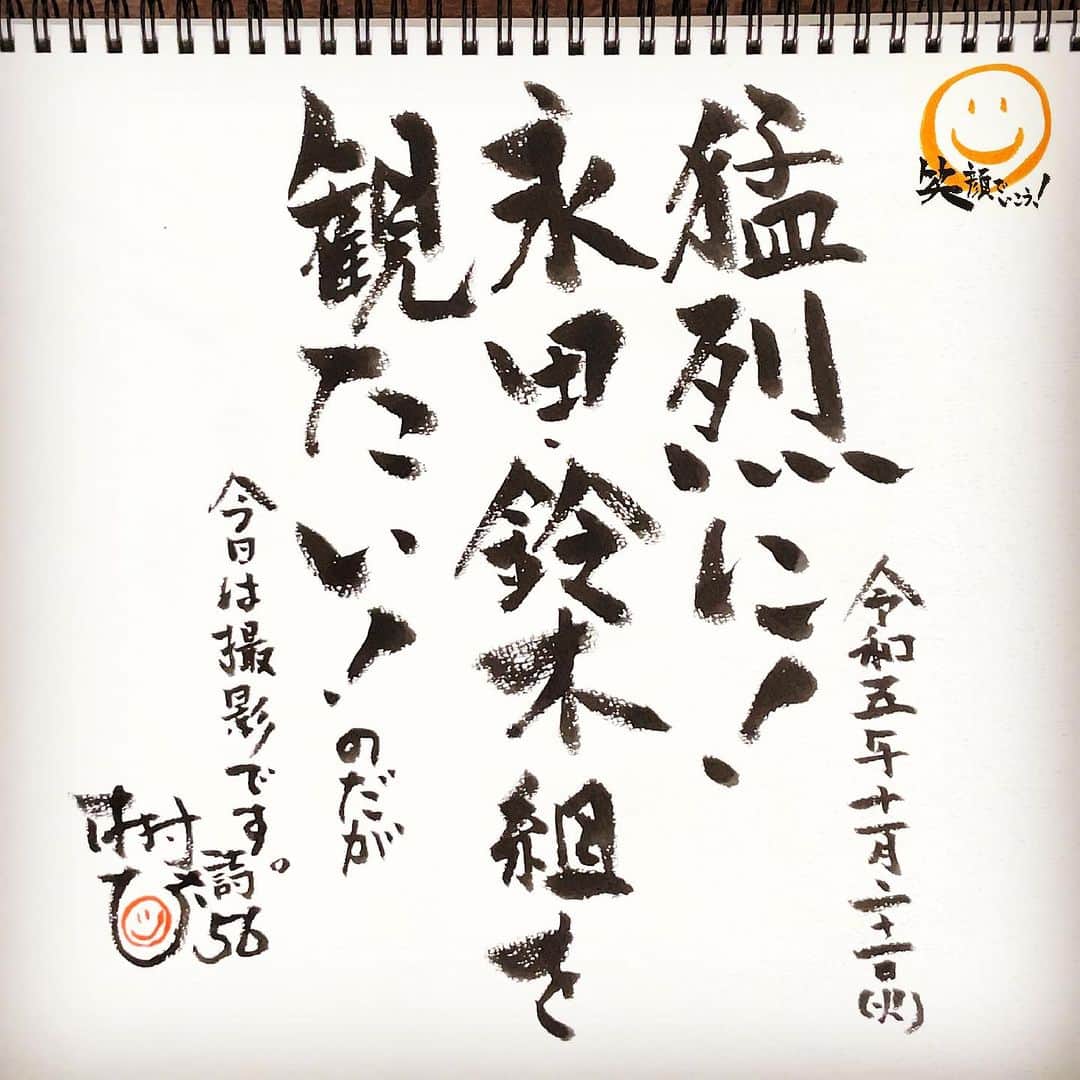 笑顔でいこう!
令和五年十一月二十一日(火)
猛烈に!
永田・鈴木組を
観たい!のだが
今日は撮影です。
木村ひ
満56